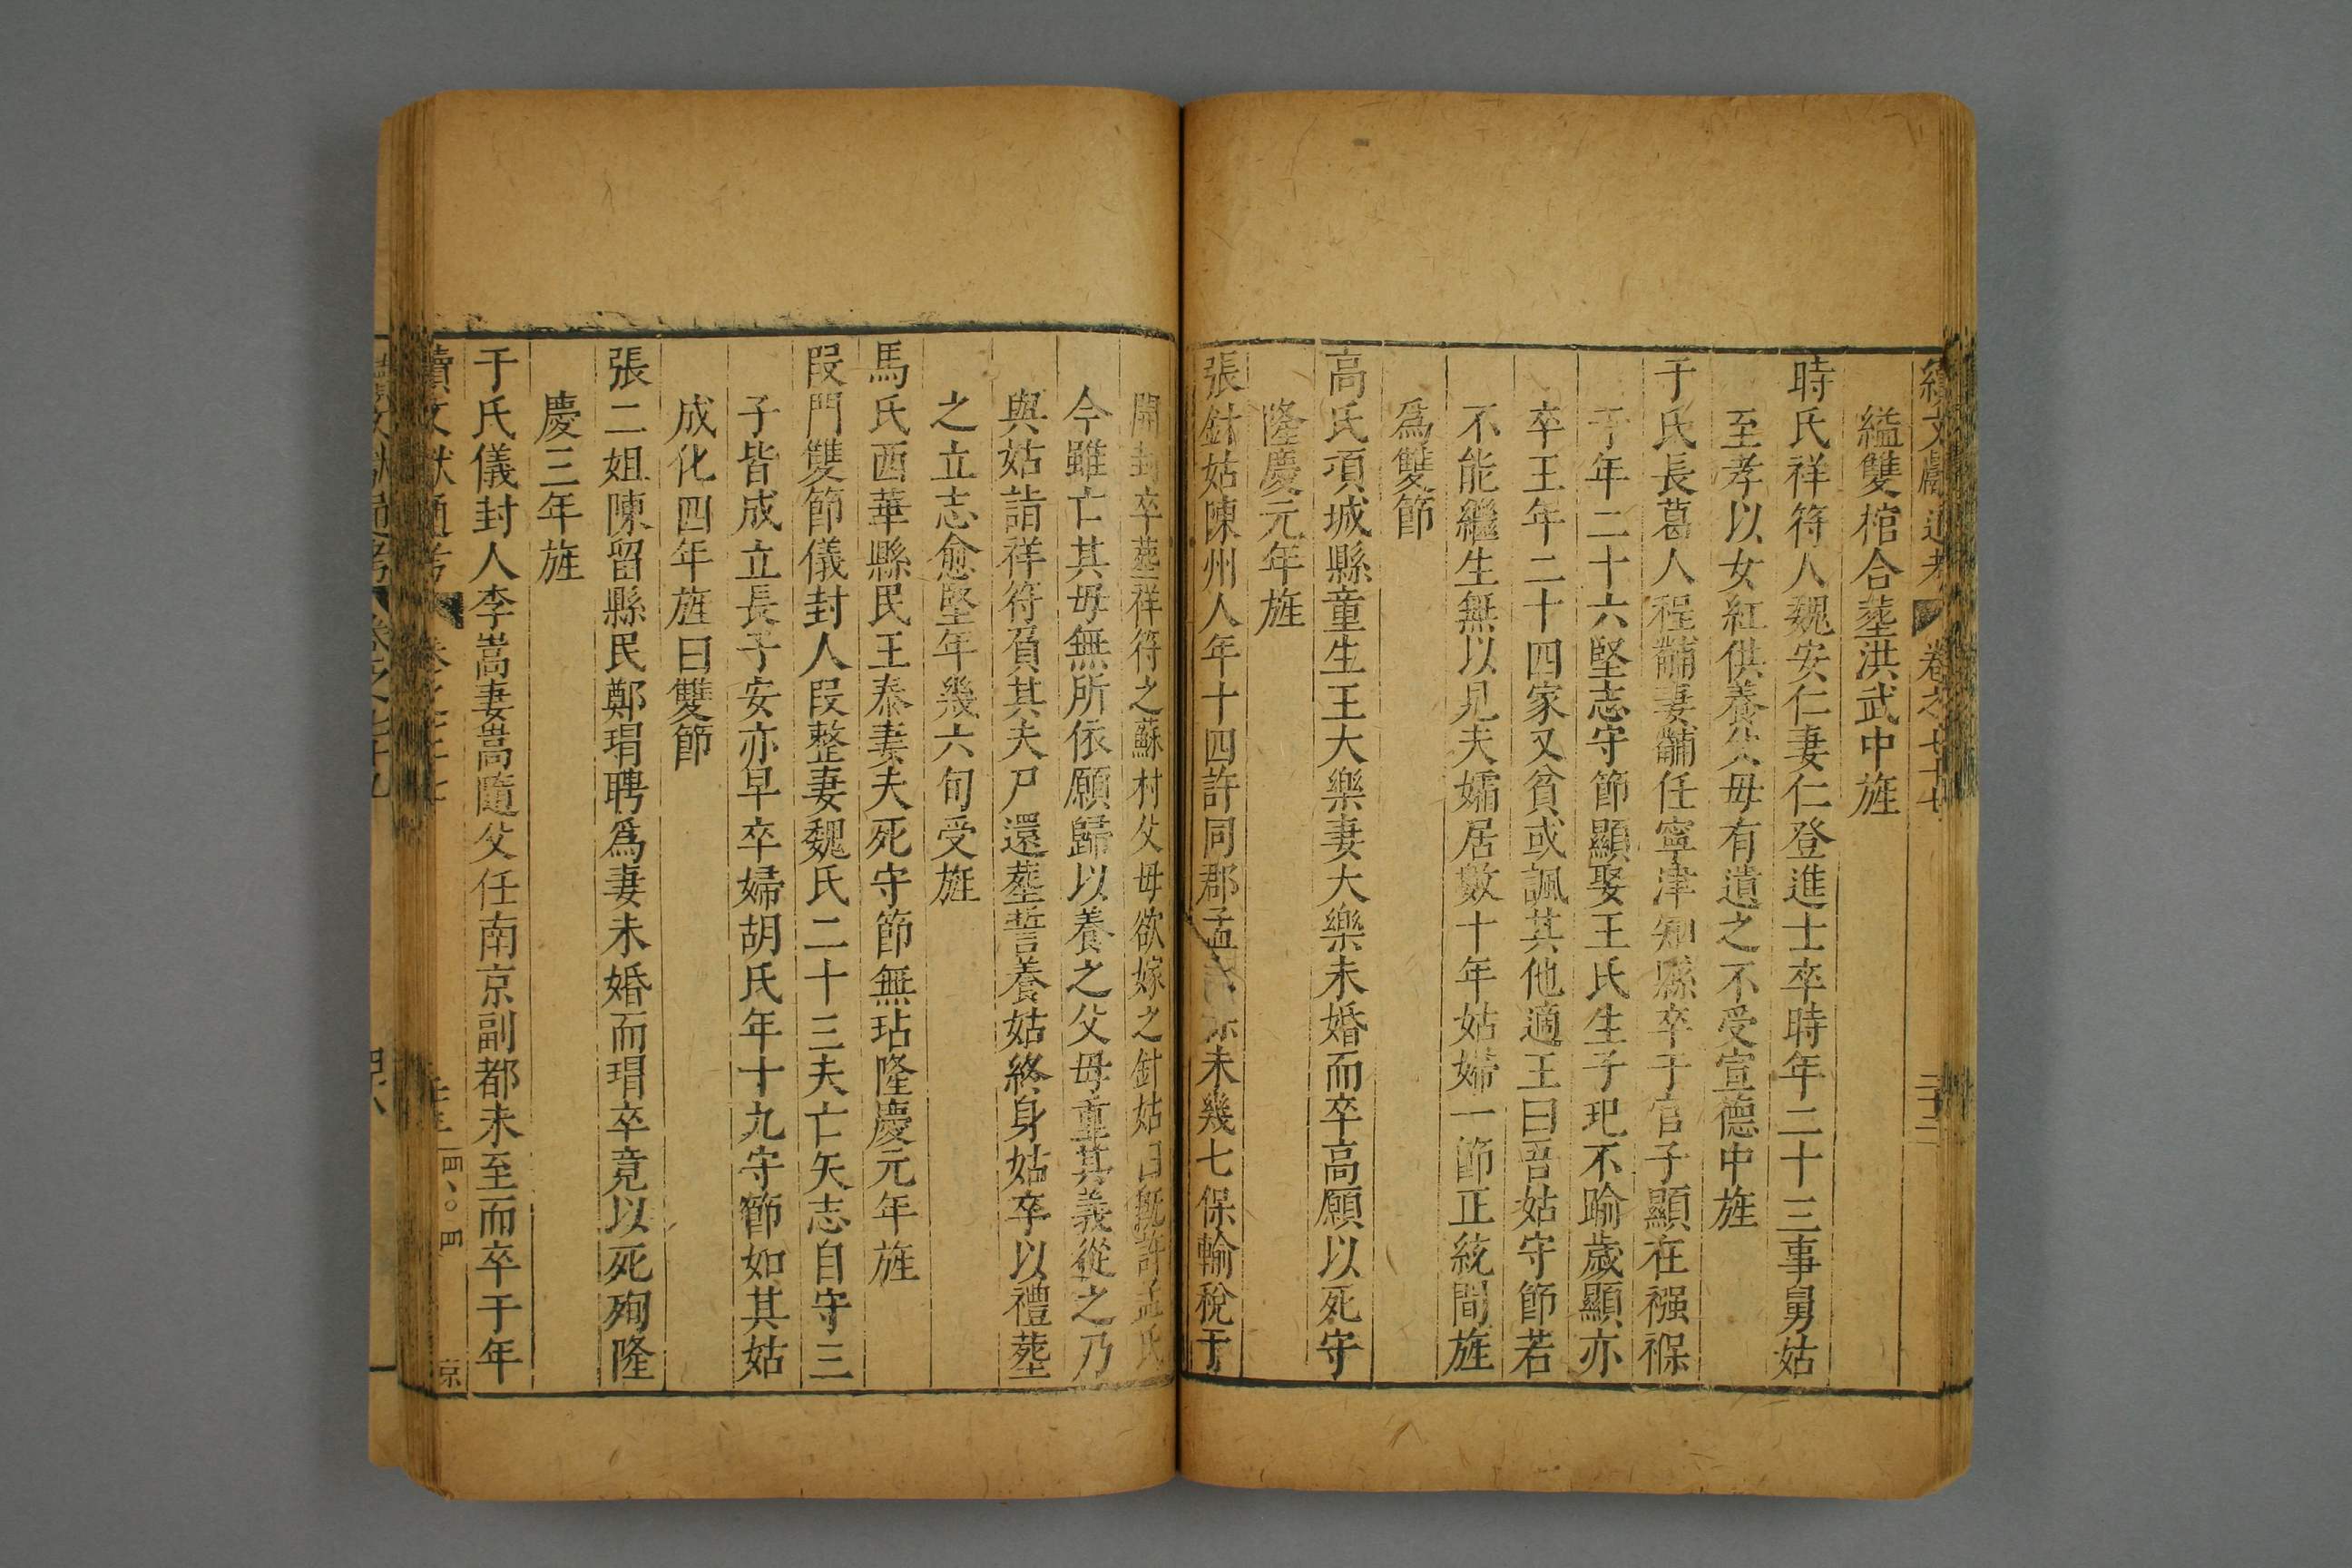 續文獻通考 卷之七十七
縊雙棺合塟洪武中旌
時氏祥符人魏安仁妻仁登進士卒時年二十三事舅姑
至孝以女紅供養父母有遺之不受宣德中旌
于氏長葛人程黼妻黼任寧津知縣卒于官子顯在襁褓
于年二十六堅志守節顯娶王氏生子玘不踰歲顯亦
卒王年二十四家又貧或諷其他適王曰吾姑守節若
不能繼生無以見夫孀居數十年姑婦一節正統間旌
爲雙節
高氏項城縣童生王大樂妻大樂未婚而卒高願以死守
隆慶元年旌
張針姑陳州人年十四許同郡孟未幾七保輸稅于
開封卒塟祥符之蘇村父母欲嫁之針姑曰既許孟氏
今雖亡其母無所依願歸以養之父母重其義從之乃
與姑詣祥符負其夫尸還塟誓養姑終身姑卒以禮塟
之立志愈堅年幾六旬受旌
馬氏西華縣民王泰妻夫死守節無玷隆慶元年旌
段門雙節儀封人段整妻魏氏二十三夫亡矢志自守三
子皆成立長子安亦早卒婦胡氏年十九守節如其姑
成化四年旌曰雙節
張二姐陳留縣民鄭瑁聘爲妻未婚而瑁卒竟以死殉隆
慶三年旌
于氏儀封人李嵩妻嵩隨父任南京副都未至而卒于年
續文獻通考